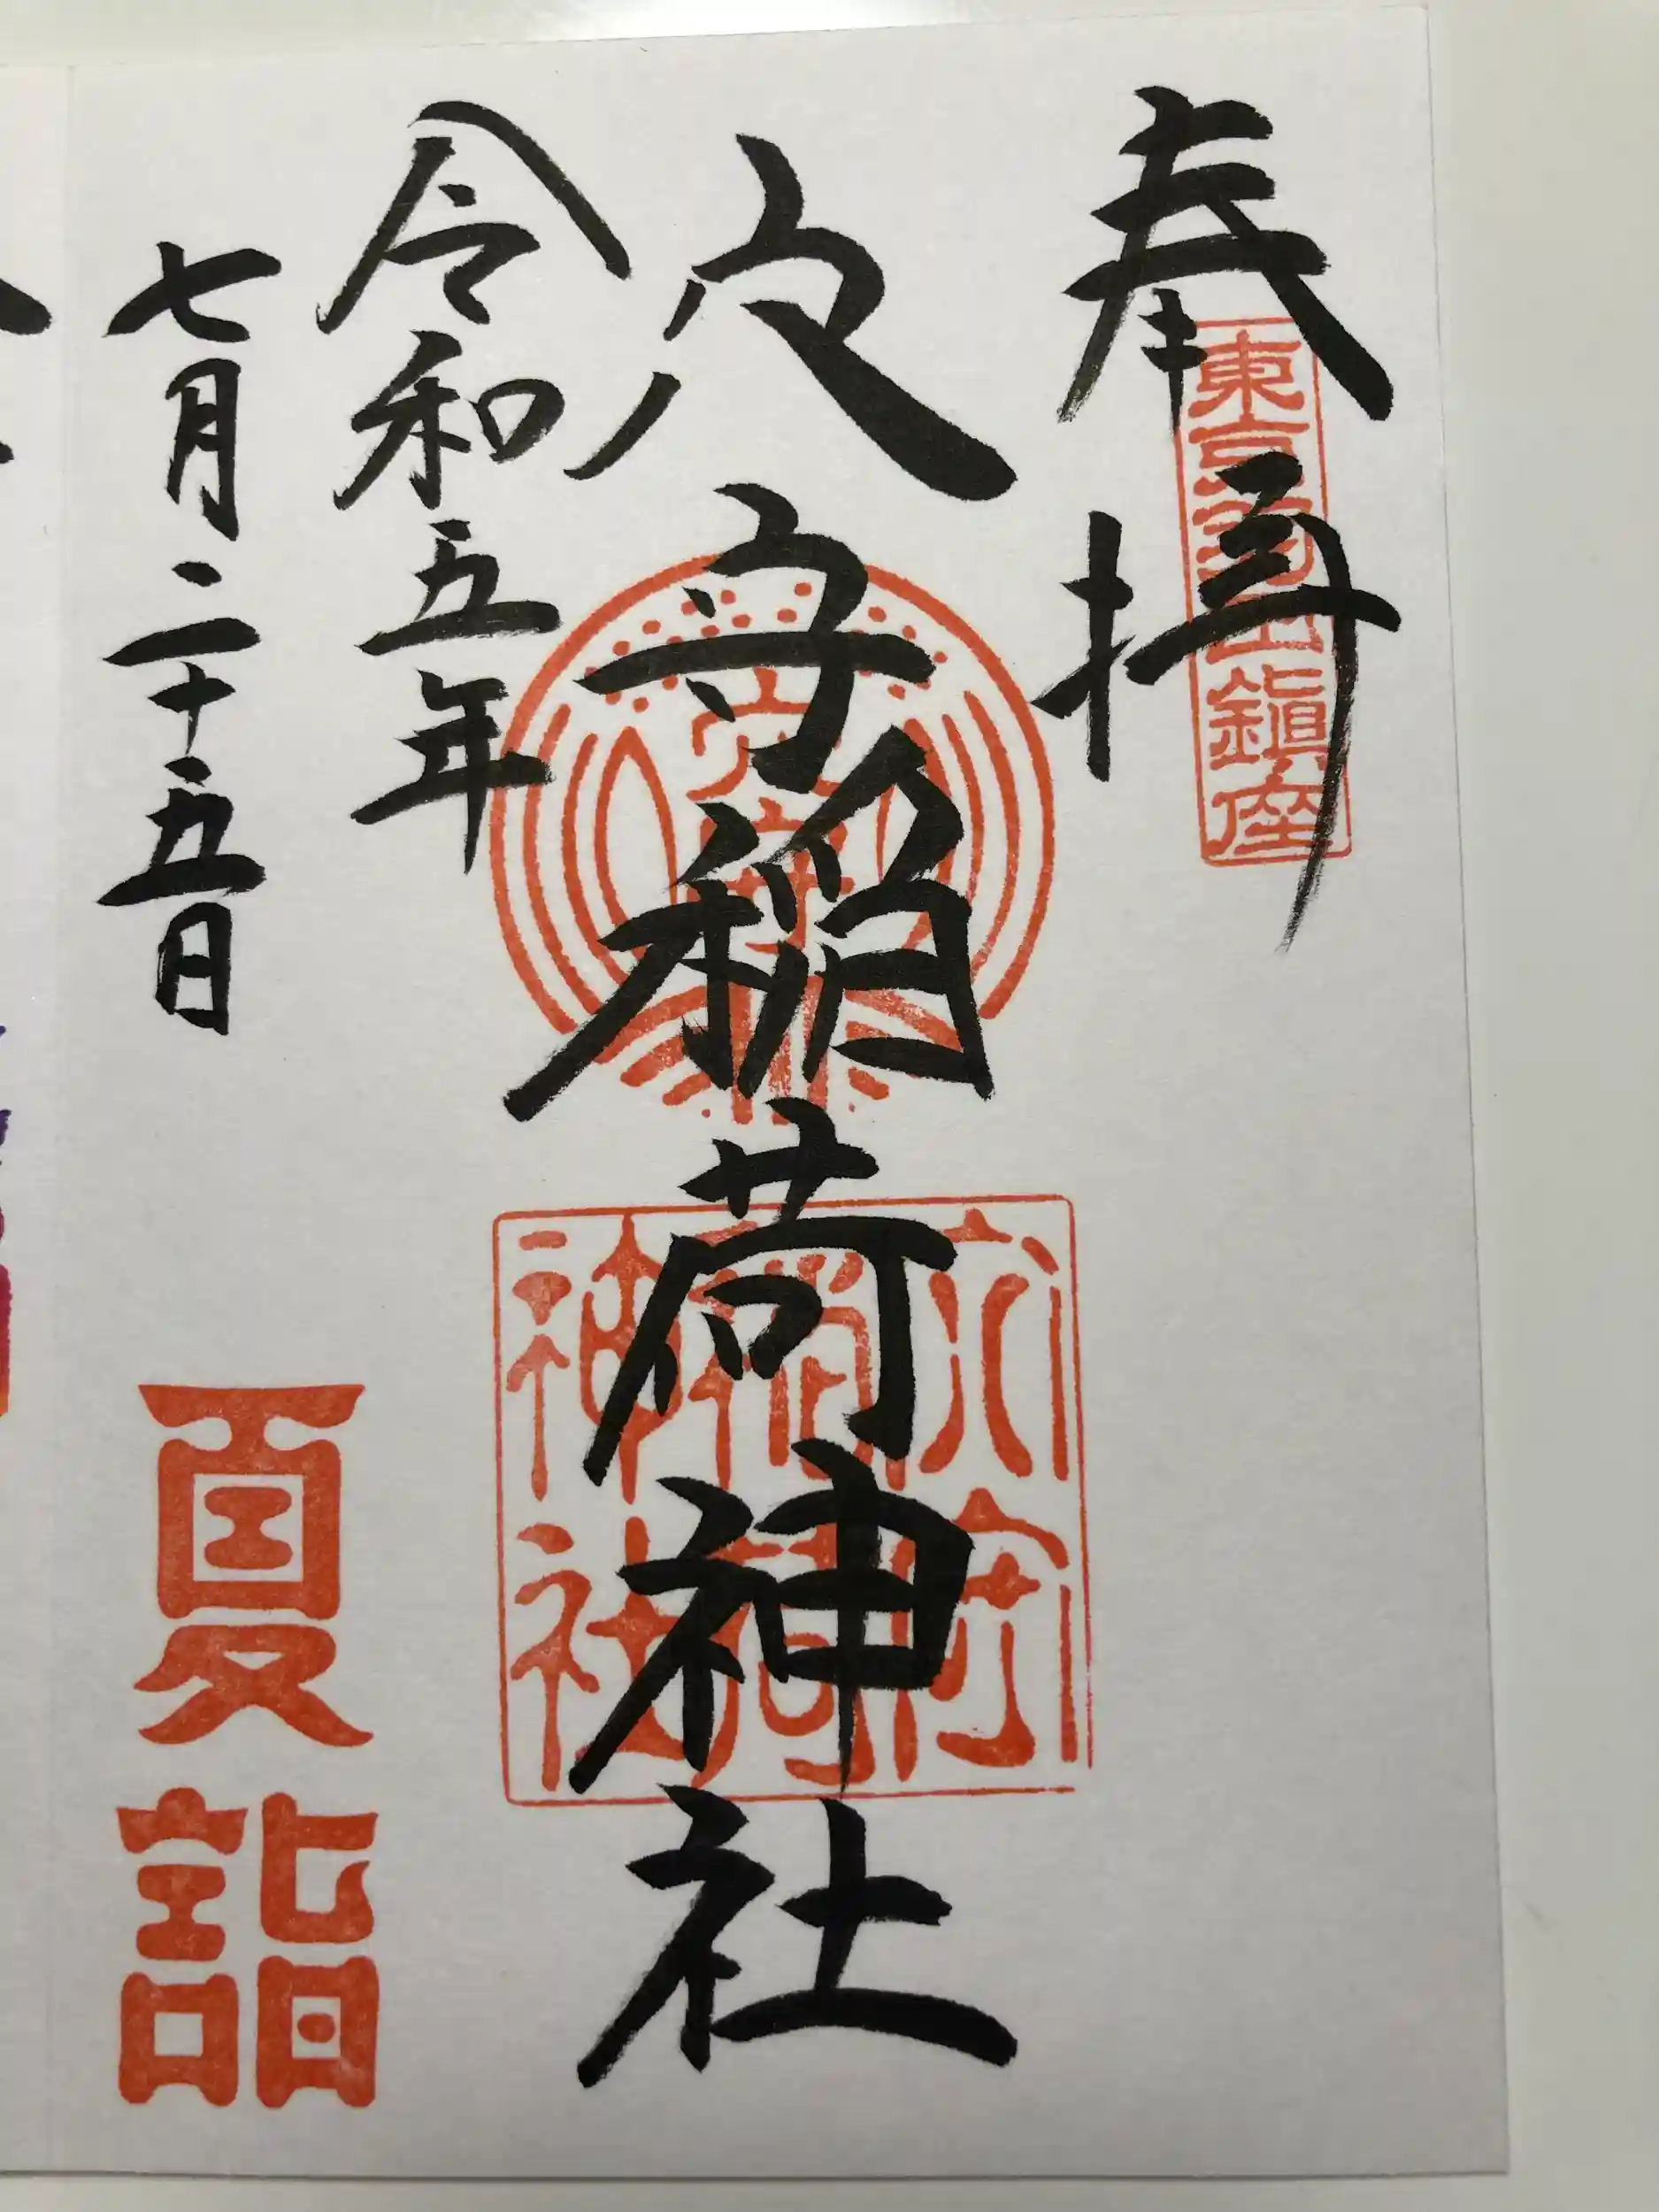 奉拝
東京羽田鎮座
穴守稲荷神社
穴守
穴守稲荷神社
令和五年
七月二十五日
夏詣